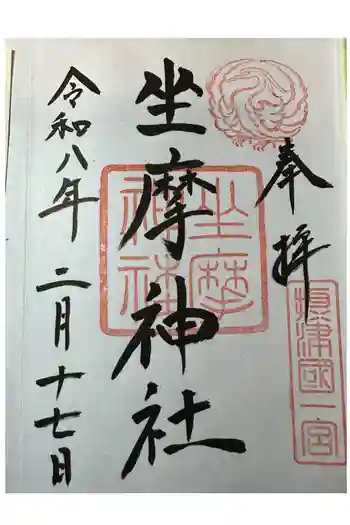 奉拝
摂津國一宮
坐摩神社
坐摩神社
令和八年 二月十七日